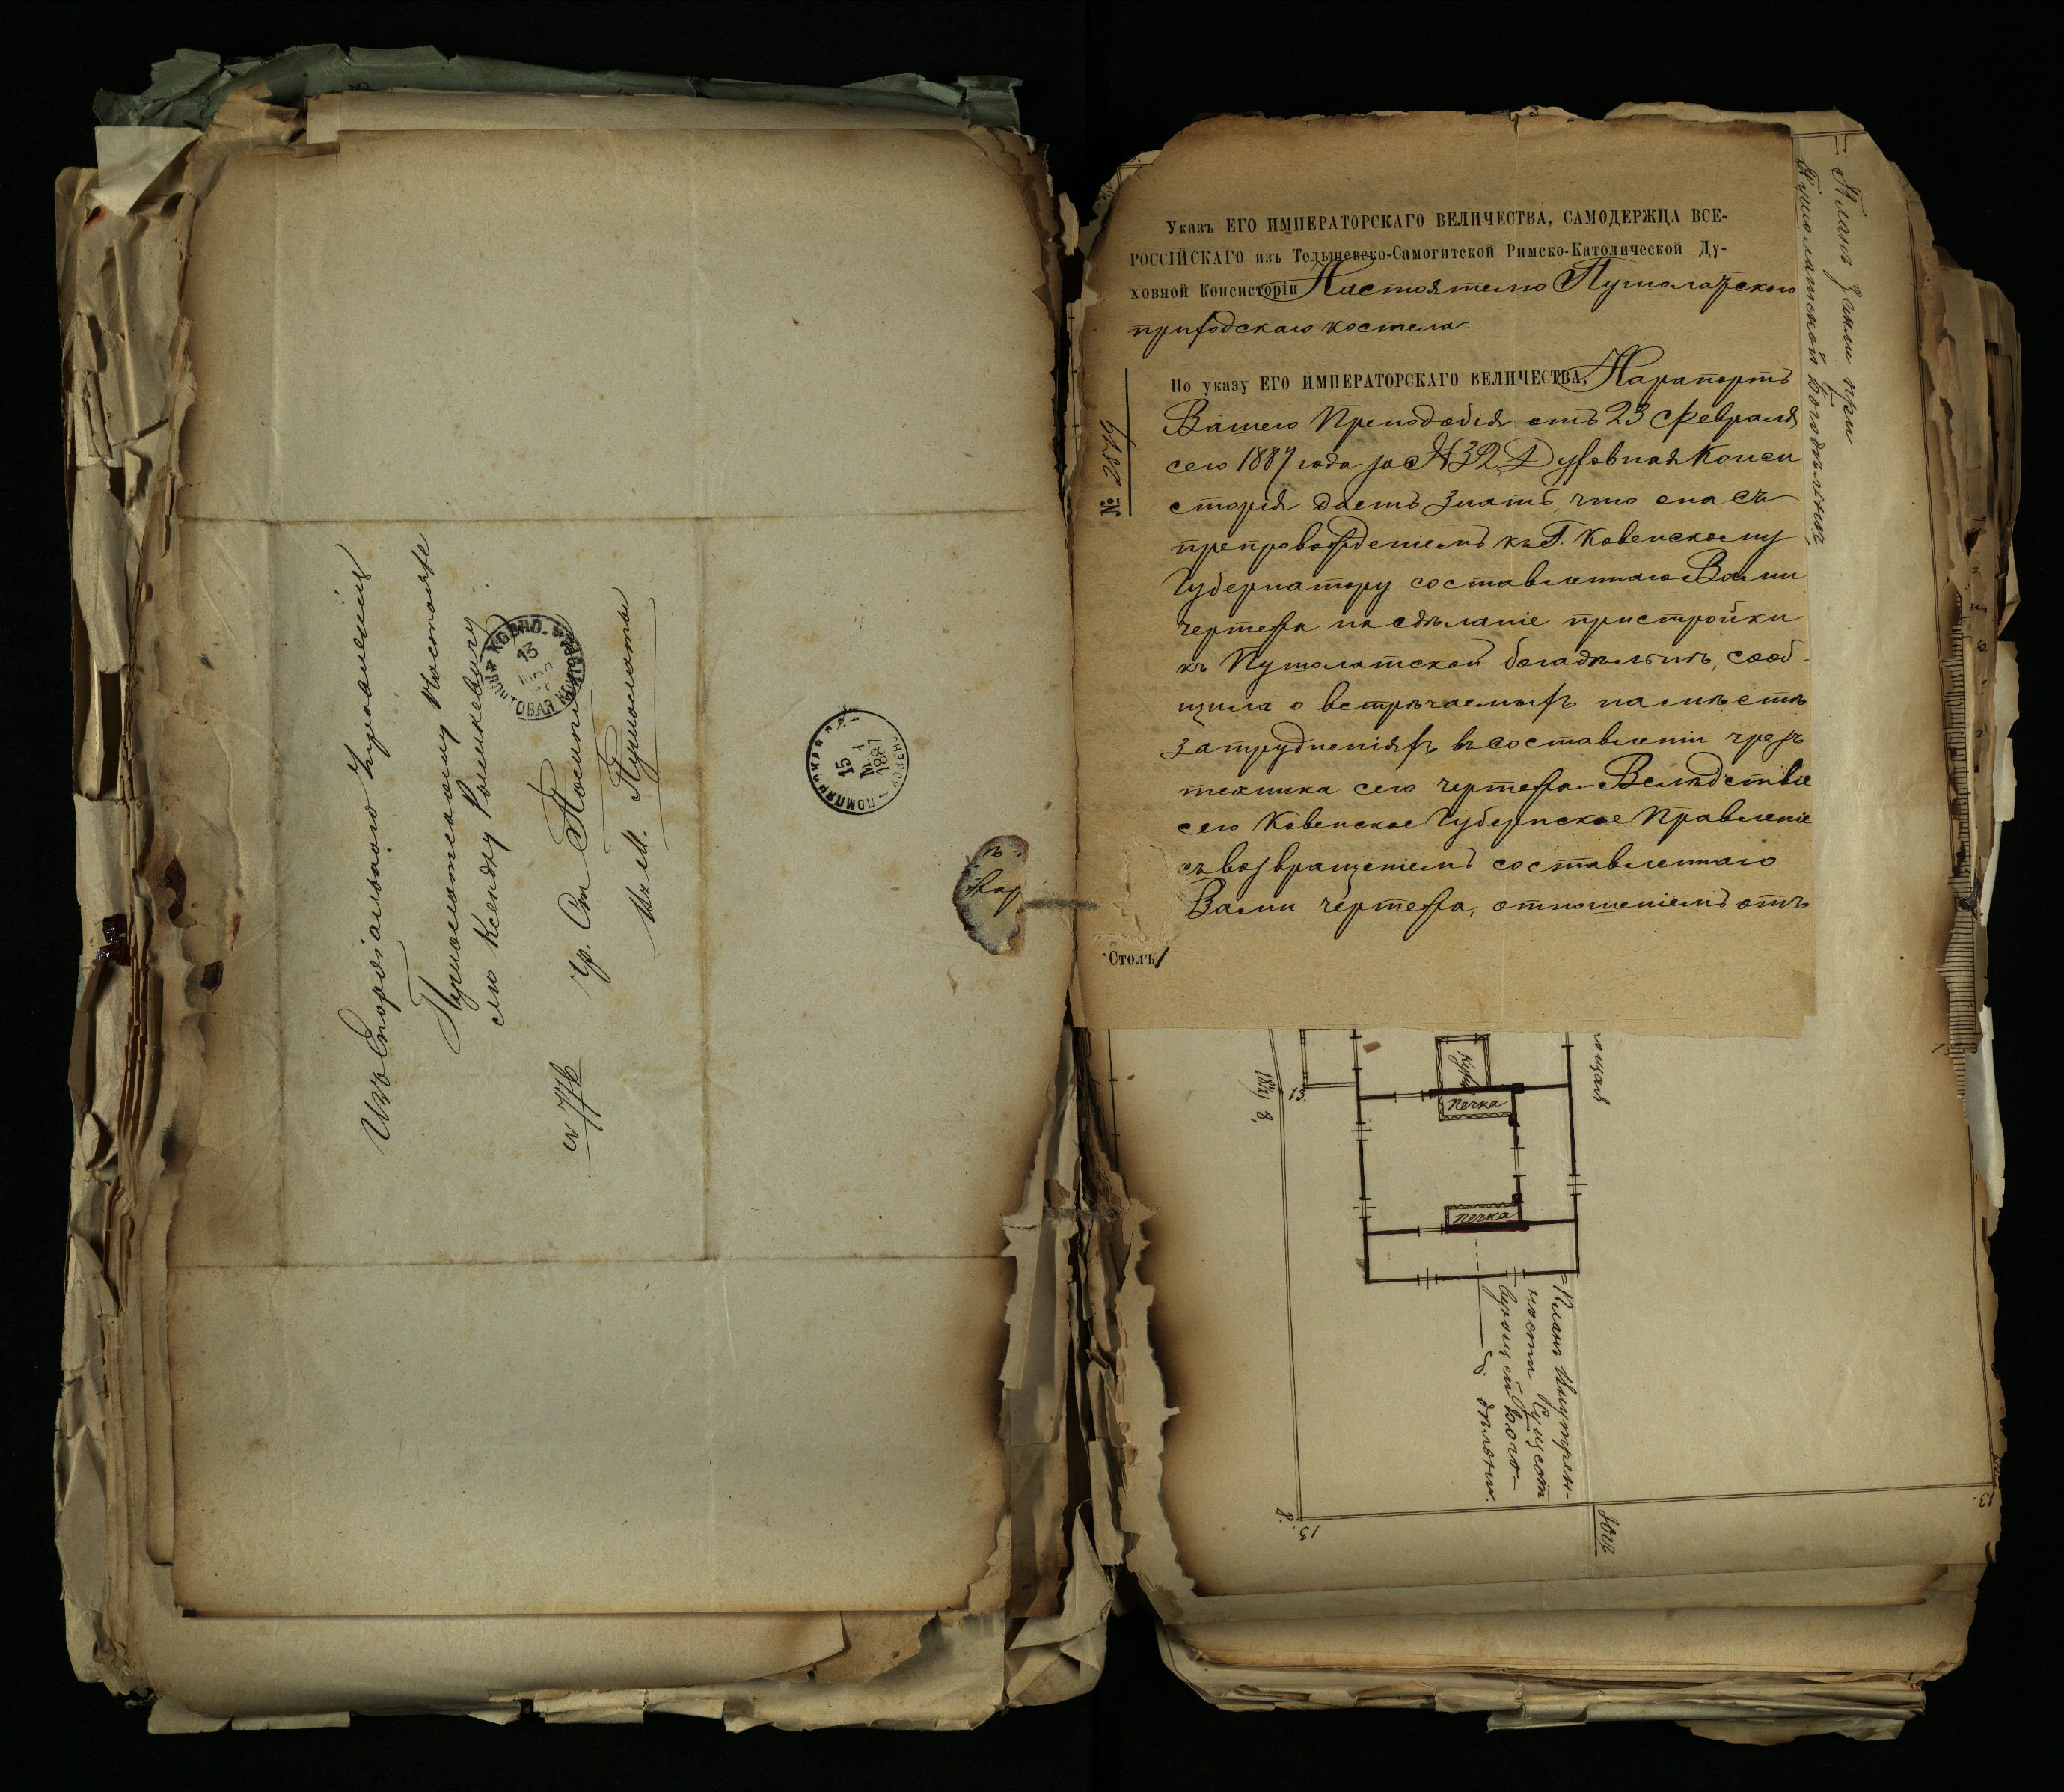 Изъ Епархіальнаго Управленія
Пушолатскому Настояте
лю Ксендзу Ромшкевичу
чр. Ст.
въ м. Пушолаты
№ 776
15
1887
Указъ ЕГО ИМПЕРАТОРСКАГО ВЕЛИЧЕСТВА, САМОДЕРЖЦА ВСЕ-
РОССІЙСКАГО изъ Тельшевско-Самогитской Римско-Католической Ду-
ховной Консисторіи Настоятелю Пушолатскаго
приходскаго костела.
По указу ЕГО ИМПЕРАТОРСКАГО ВЕЛИЧЕСТВА, На рапортъ
Вашего Преподобія отъ 23 Февраля
сего 1887 года за № 32, Духовная Конси
сторія даетъ знать, что она съ
препровожденіемъ къ Г. Ковенскому
Губернатору составленнаго Вами
чертежа на сдѣланіе пристройки
къ Пушолатской богадѣльнѣ, сооб-
щила о встрѣчаемыхъ на мѣстѣ
затрудненіяхъ въ составленіи чрезъ
техника сего чертежа. Вслѣдствіе
сего Ковенское Губернское Правленіе
съ возвращеніемъ составленнаго
Вами чертежа, отношеніемъ отъ
№ 2819
Столъ 1
Планъ земли при
Пушолатской богодѣльни
печка
печка
13.
Планъ внутрен-
части сущест
вующей бого-
дѣльни.
Югъ
13.
8.
13.